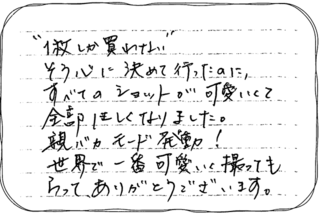 "1枚しか買わない"
そう心に決めて行ったのに、
すべてのショットが可愛いくて
全部ほしくなりました。
親バカモード発動!
世界で一番可愛いく撮っても
らってありがとうございます。